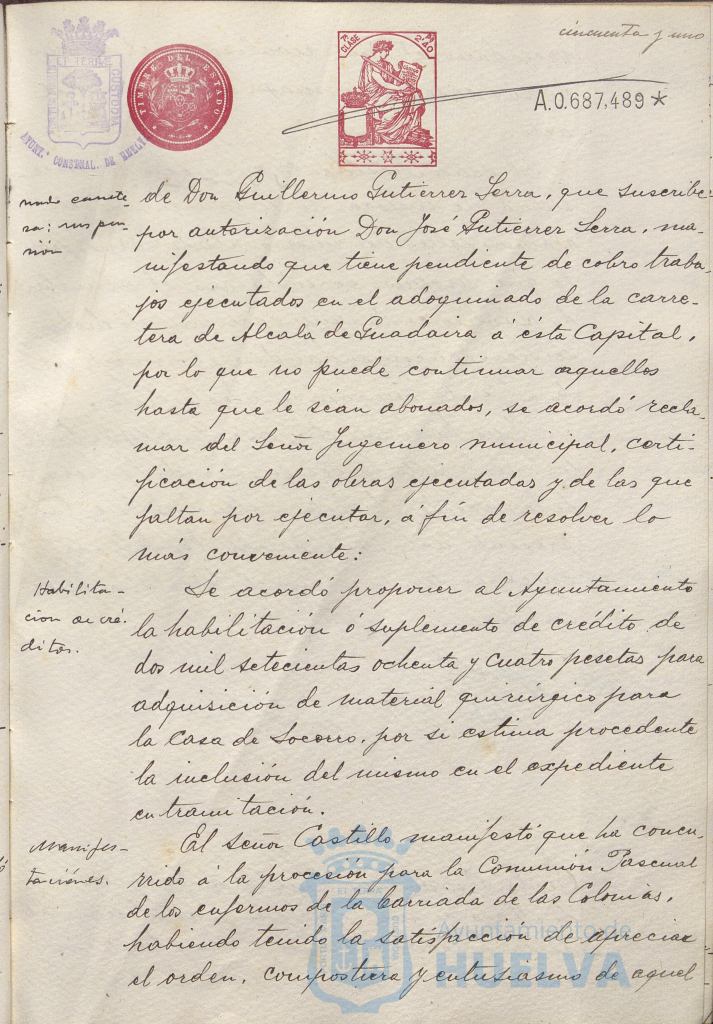 cincuenta y uno
TIMBRE DEL ESTADO
7ª CLASE 2'40
A.0.687,489*
CUSTODIA
AYUNT. CONSTNAL. DE HUELVA
de Don Guillermo Gutierrez Serra, que suscribe
por autorización Don José Gutierrez Serra, ma-
nifestando que tiene pendiente de cobro traba-
jos ejecutados en el adoquinado de la carre-
tera de Alcalá de Guadaira á ésta Capital,
por lo que no puede continuar aquellos
hasta que le sean abonados, se acordó recla-
mar del Señor Ingeniero municipal, certi-
ficación de las obras ejecutadas y de las que
faltan por ejecutar, á fin de resolver lo
más conveniente:
Habilita-
cion de cré-
ditos.
Se acordó proponer al Ayuntamiento
la habilitación ó suplemento de crédito de
dos mil setecientas ochenta y cuatro pesetas para
adquisición de material quirúrgico para
la Casa de Socorro, por si estima procedente
la inclusión del mismo en el expediente
en tramitación.
Manifes-
taciones.
El señor Castillo manifestó que ha concu-
rrido á la procesión para la Comunión Pascual
de los enfermos de la barriada de las Colonias,
habiendo tenido la satisfacción de apreciar
el orden, compostura y entusiasmo de aquel
Ayuntamiento de
HUELVA